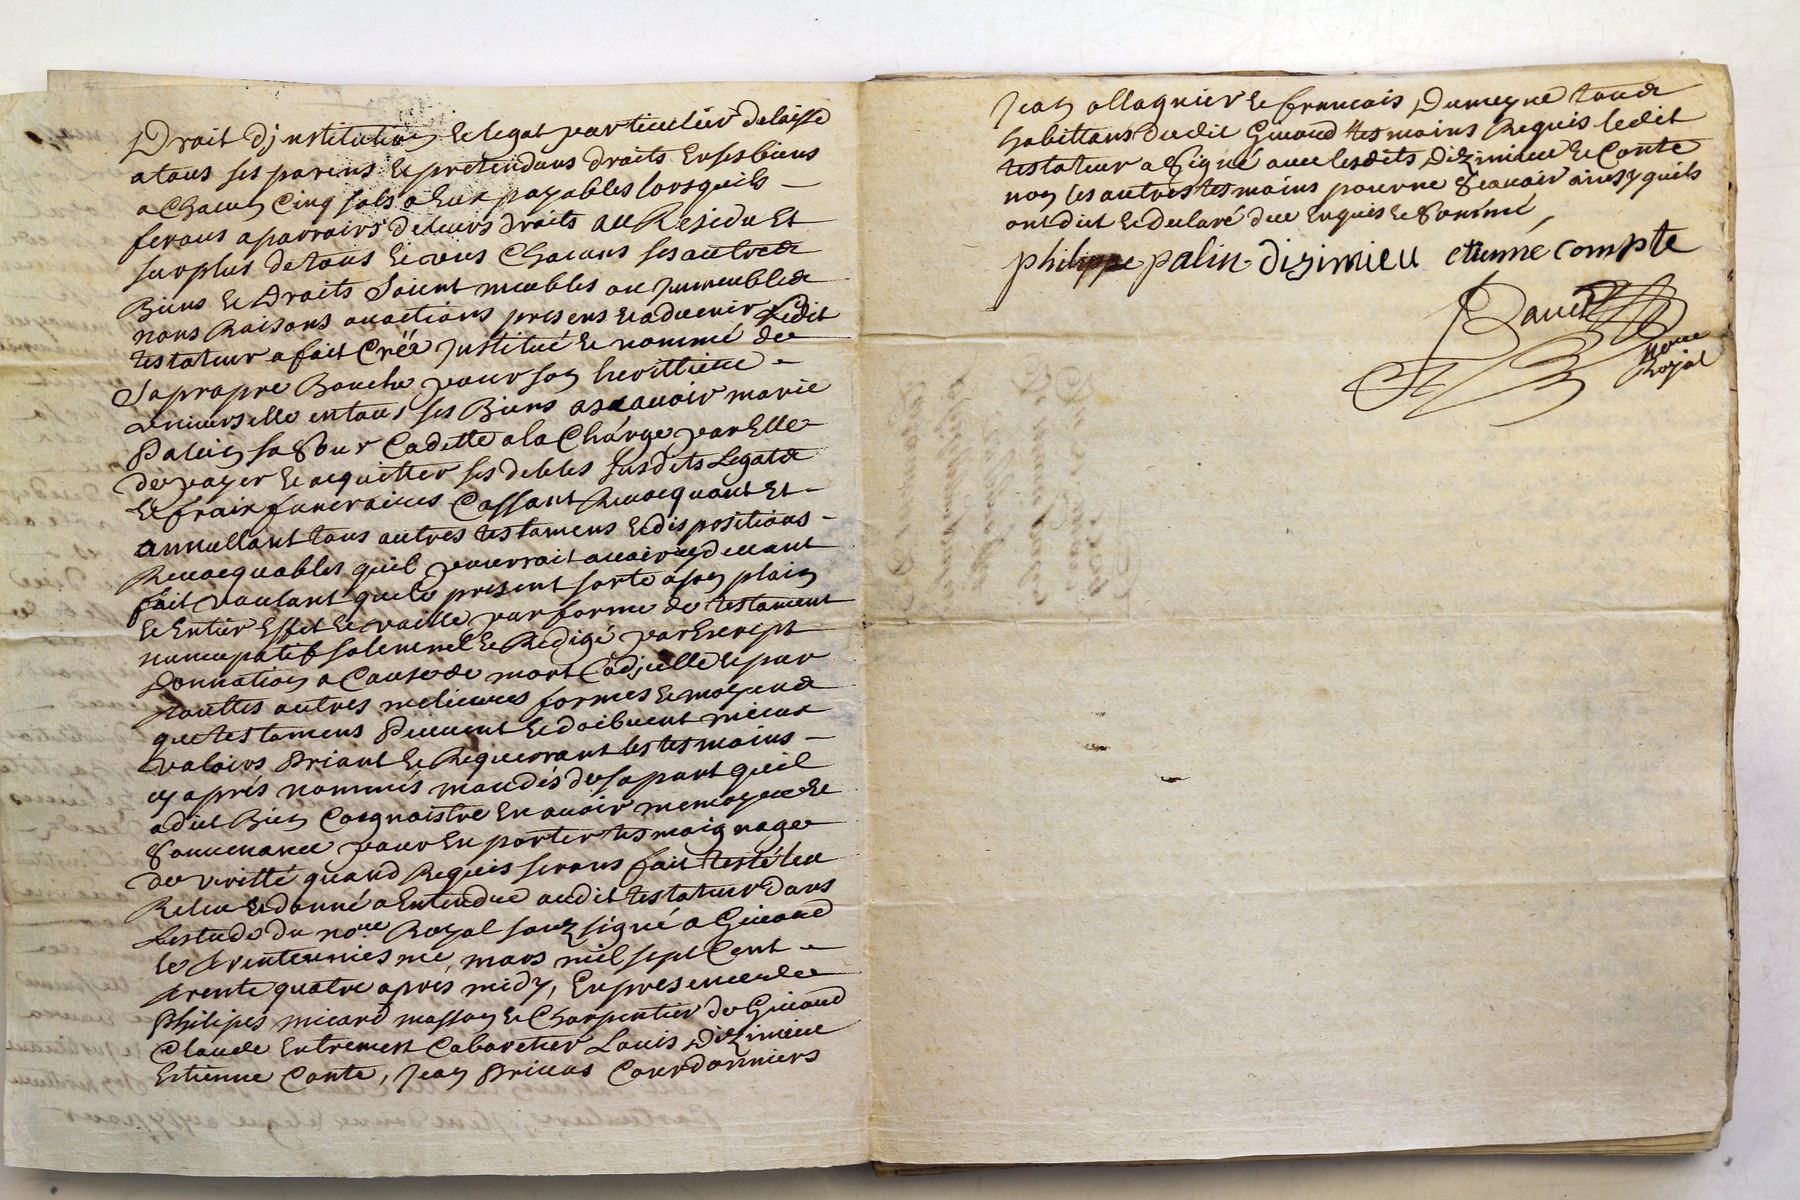 Droit d'jnstitution et legat particulier delaisse
a tous ses parens et pretendans droits en ses biens
a Chacun Cinq sols a Eux payables lorsquils
ferons aparroirs de leurs droits au Residu Et
surplus de tous et uns Chacuns ses autres
Biens et Droits Soient meubles ou jmmeubles
noms Raisons ou actions presens et advenir Ledit
testateur a fait Créé jnstitué et nommé de
Sa propre Bouche pour son heritiere
universelle en tous ses Biens ascavoir marie
Palin sa Sœur Cadette a la Charge par Elle
de payer et acquitter ses debtes susdits Legats
et fraix funeraires Cassant Revocquant Et
annullant tous autres testamens et dispositions
Revocquables quil pourroit avoir cy devant
fait voulant que le present sorte a son plain
et Entier Effet et vaille par forme de testament
nuncupatif solemnel et Redigé par Escript
Donnation a Cause de mort Codjcille et par
touttes autres melieures formes et moyens
que testamens Peuvent et doibvent mieux
valoirs Priant et Requerrant les tesmoins
cy aprés nommés mandés de sa part quil
a dit Bien Cognoistre En avoir memoyre et
Souvenance pour En porter tesmoignage
de veritté quand Requis serons fait testé leu
Releu et donné a Entendre audit testateur dans
Lestude du nore Royal souzsigné a Givord
le trenteuniesme mars mil sept Cent
trente quatre aprés midy, En presence de
Philipes micard masson et Charpentier de Givord
Claude Entremen Cabaretier Louis Dizimieu
Estienne Conte, Jean Prieas Courdonniers
Jean allagnier et francois Dumeyne tous
habittans dudit Givord tesmoins Requis ledit
testateur a Signé avec lesdits Dizimieu et Conte
non les autres tesmoins pour ne Scavoir ainsy quils
ont dit et declaré de ce Enquis et Sommé
philippe palin dizimieu etienne compte
nore
Royal